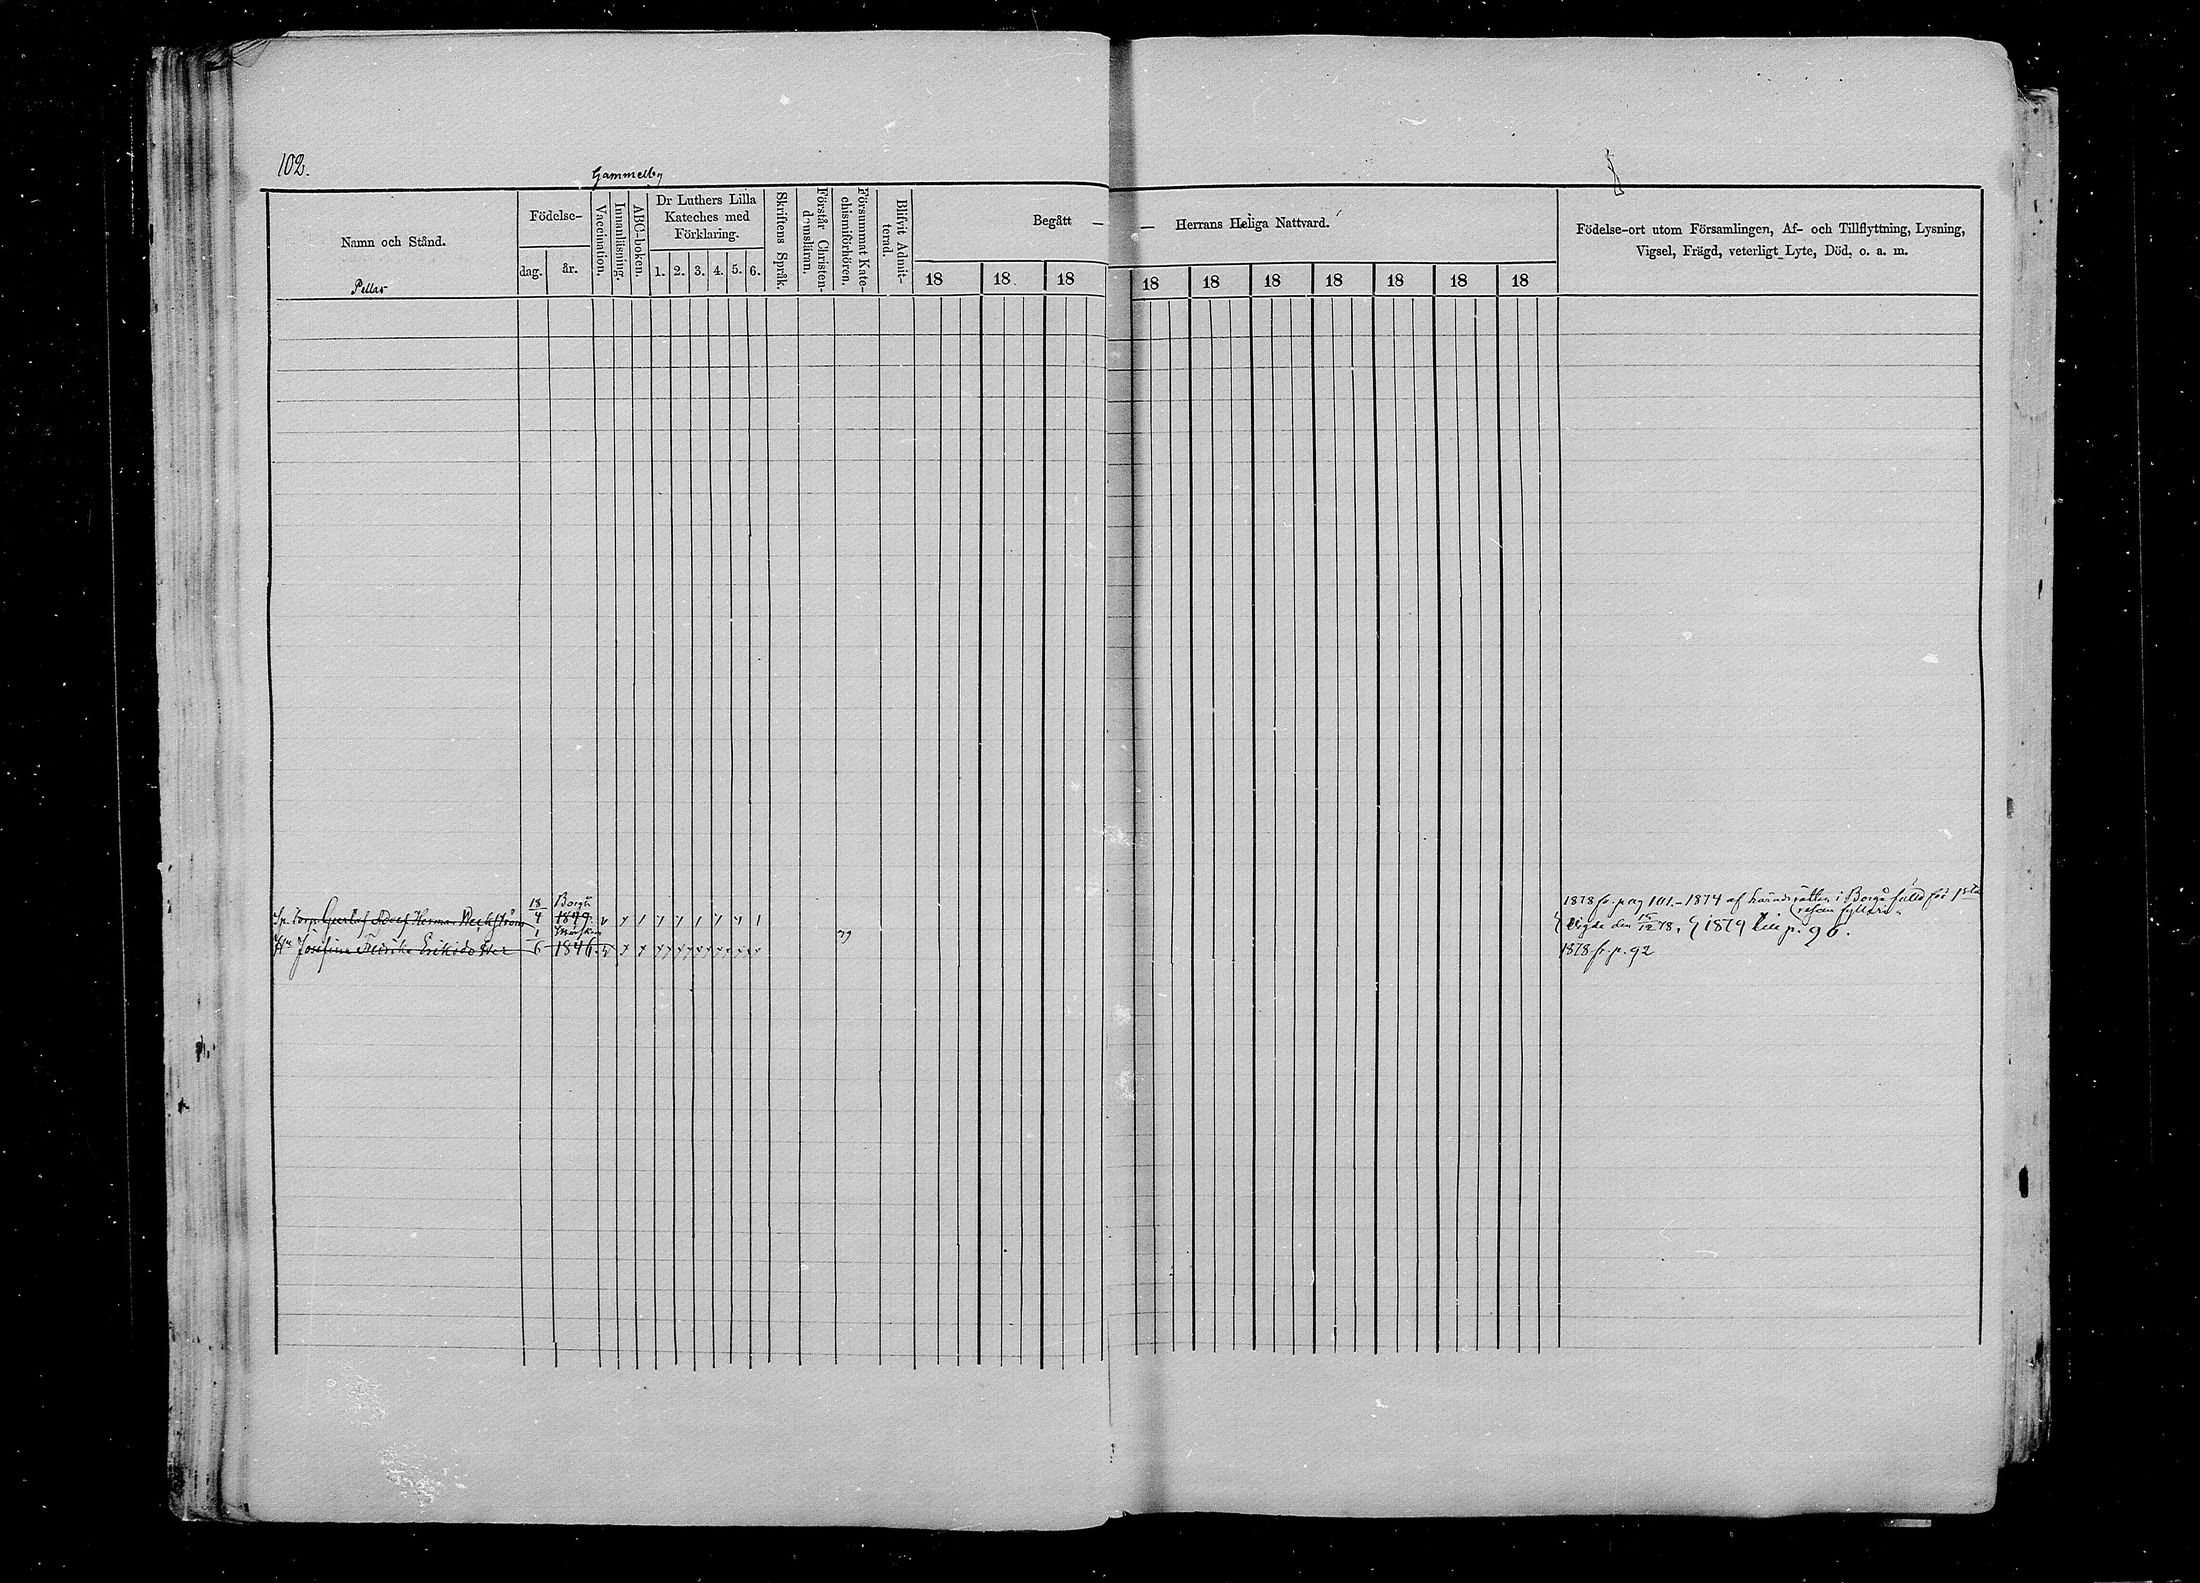 102.
Gammelby
Namn och Stånd.
Pellas
Födelse-
dag. år.
Vaccination.
Innanläsning.
ABC-boken.
Dr Luthers Lilla
Kateches med
Förklaring.
1. 2. 3. 4. 5. 6.
Skriftens Språk.
Förstår Christen-
domsläran.
Försummat Kate-
chismiförhören.
Blifvit Admit-
terad.
Begått — — Herrans Heliga Nattvard.
18 18 18 18 18 18 18 18 18 18
Födelse-ort utom Församlingen, Af- och Tillflyttning, Lysning,
Vigsel, Frägd, veterligt Lyte, Död, o. a. m.
18 Borgå 1878 fr. pag 101. - 1874 af häradsrätten i Borgå fälld för 1sta
resan fylleri.
Sp. Torp. Gustaf Adolf Herman Weckström 4 1849. Vigde den 15/12 78. 1879 till p. 96.
1 79
Hu Josefina Fredrika Eriksdotter 6 1846. 1878 fr. p. 92